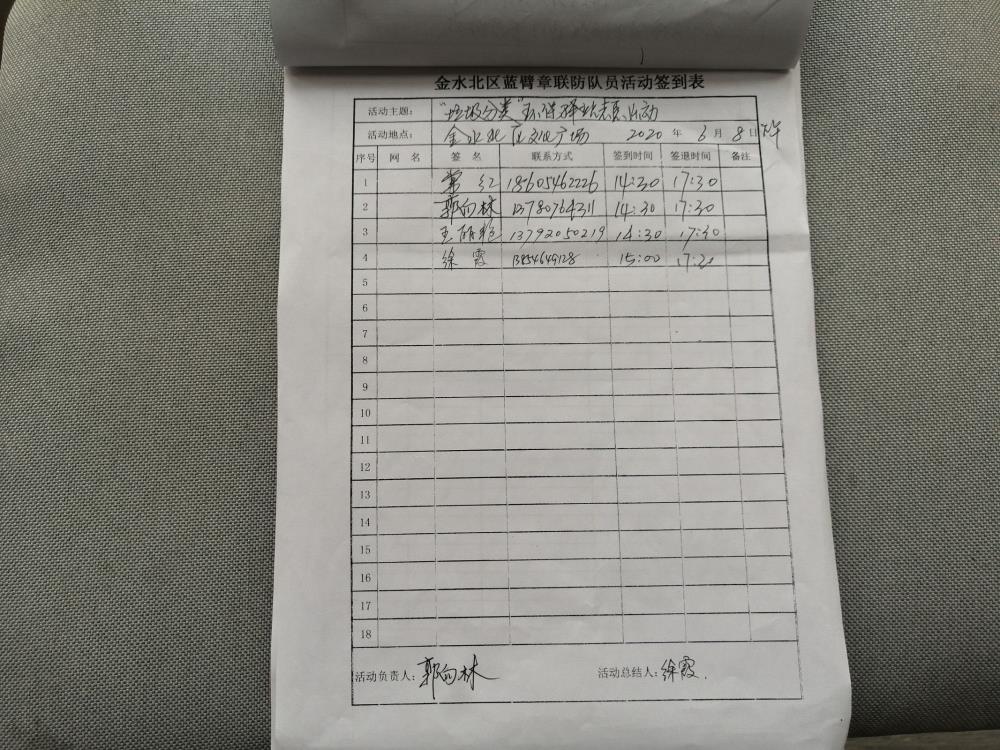 金水北区蓝臂章联防队员活动签到表
活动主题： "垃圾分类"环保驿站志愿活动
活动地点： 金水北区文化广场 2020 年 6 月 8 日 下午
序号 网 名 签 名 联系方式 签到时间 签退时间 备注
1 常红 18605462226 14:30 17:30
2 郭向林 13780764311 14:30 17:30
3 王丽艳 13792050219 14:30 17:30
4 徐霞 15:00 17:30
5
6
7
8
9
10
11
12
13
14
15
16
17
18
活动负责人：郭向林 活动总结人：徐霞.